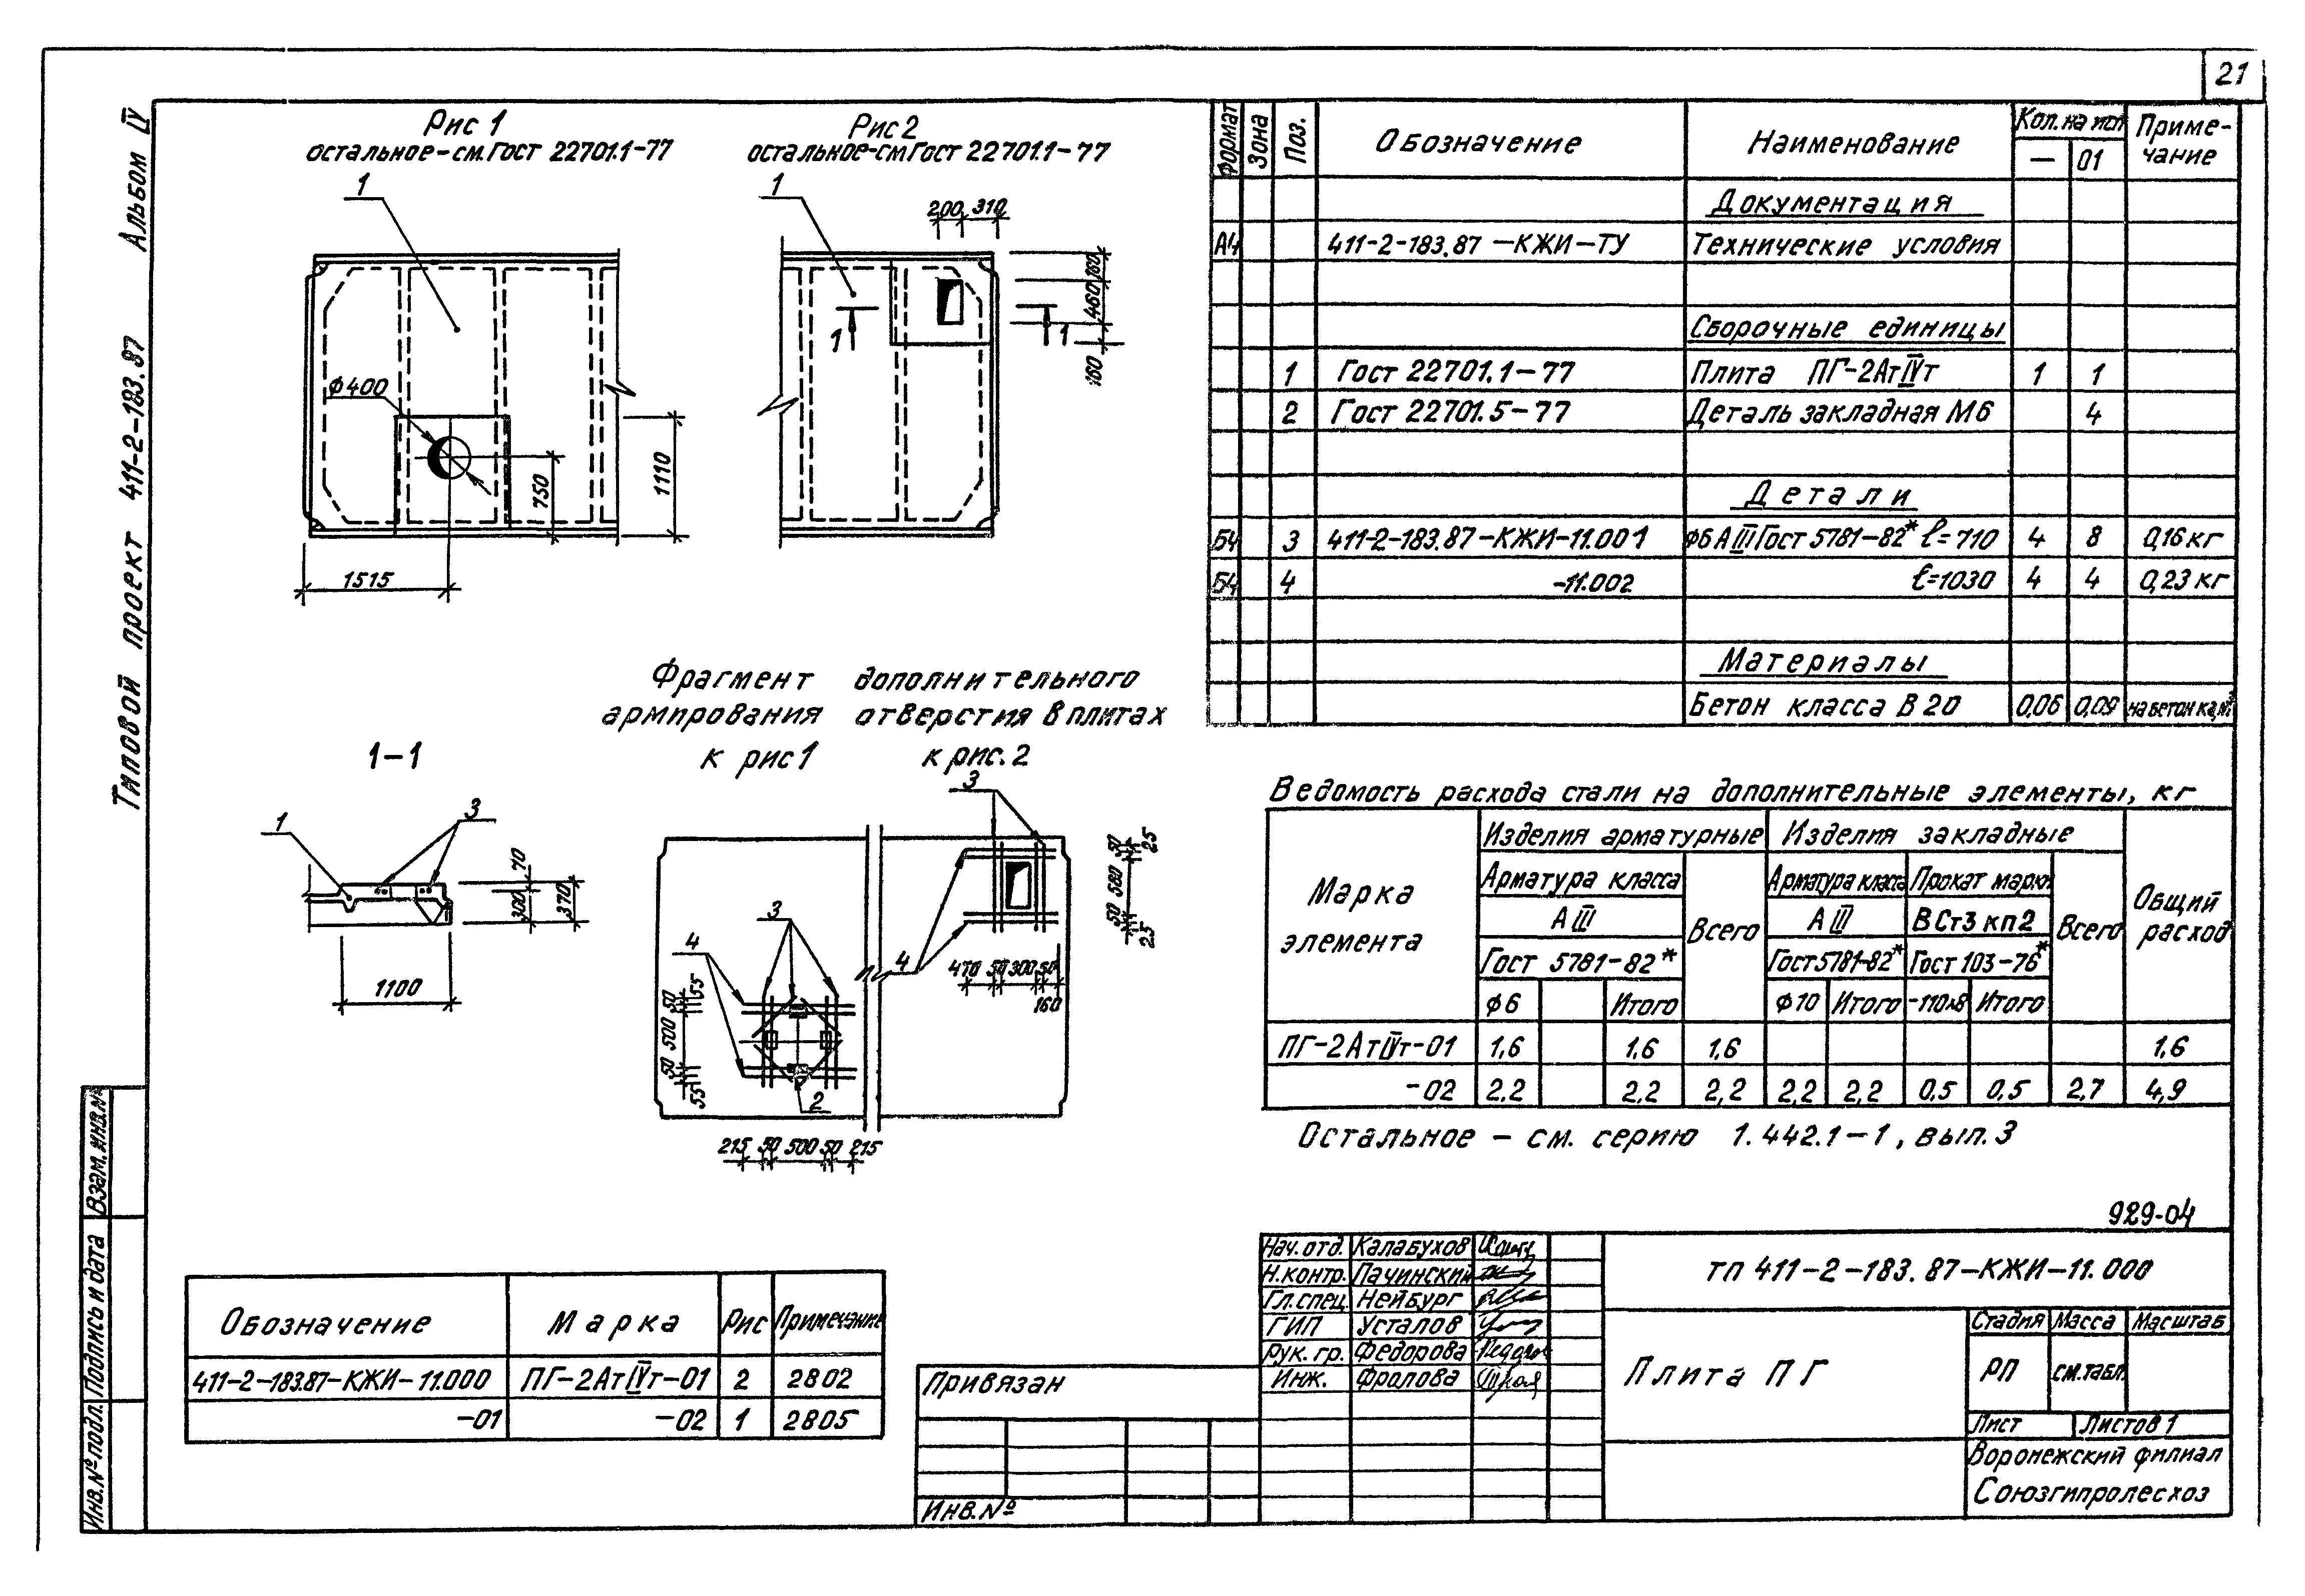 21
Альбом IV
Типовой проект 411-2-183.87
Рис 1
остальное-см.Гост 22701.1-77
1
ф400
750
1110
1515
Рис 2
остальное-см Гост 22701.1-77
1
200 310
460
160
1 1
Формат Зона Поз. Обозначение Наименование Кол. на исп Приме-
— 01 чание
Документация
А4 411-2-183.87-КЖИ-ТУ Технические условия
Сборочные единицы
1 Гост 22701.1-77 Плита ПГ-2АтIVт 1 1
2 Гост 22701.5-77 Деталь закладная М6 4
Детали
Б4 3 411-2-183.87-КЖИ-11.001 ф6 АIII Гост 5781-82* ℓ=710 4 8 0,16 кг
Б4 4 -11.002 ℓ=1030 4 4 0,23 кг
Материалы
Бетон класса В 20 0,06 0,09 на бетон ка, м³
Фрагмент дополнительного
армирования отверстия в плитах
к рис 1 к рис. 2
1-1
1 3
70
300 370
1100
3
4
50 55
500
50
55
2
215 50 500 50 215
3
4
50 25
580
50
25
470 50 300 50
160
Ведомость расхода стали на дополнительные элементы, кг
Марка
элемента
Изделия арматурные Изделия закладные Общий
расход
Арматура класса Всего Арматура класса Прокат марки Всего
А III А III ВСт3 кп2
Гост 5781-82* Гост 5781-82* Гост 103-76*
ф6 Итого ф10 Итого -110х8 Итого
ПГ-2АтIVт-01 1,6 1,6 1,6 1,6
-02 2.2 2.2 2,2 2,2 2,2 0,5 0,5 2,7 4,9
Остальное - см. серию 1.442.1-1, вып. 3
929-04
Обозначение Марка Рис Примечание
411-2-183.87-КЖИ-11.000 ПГ-2АтIVт-01 2 2802
-01 -02 1 2805
Взам. инв.№
Подпись и дата
Инв.№ подл.
Привязан
Инв.№
Нач. отд. Калабухов
Н.контр. Пачинский
Гл.спец. Нейбург
ГИП Усталов
Рук. гр. Федорова
Инж. Фролова
тп 411-2-183.87-КЖИ-11.000
Плита ПГ
Стадия Масса Масштаб
РП см.табл.
Лист Листов 1
Воронежский филиал
Союзгипролесхоз